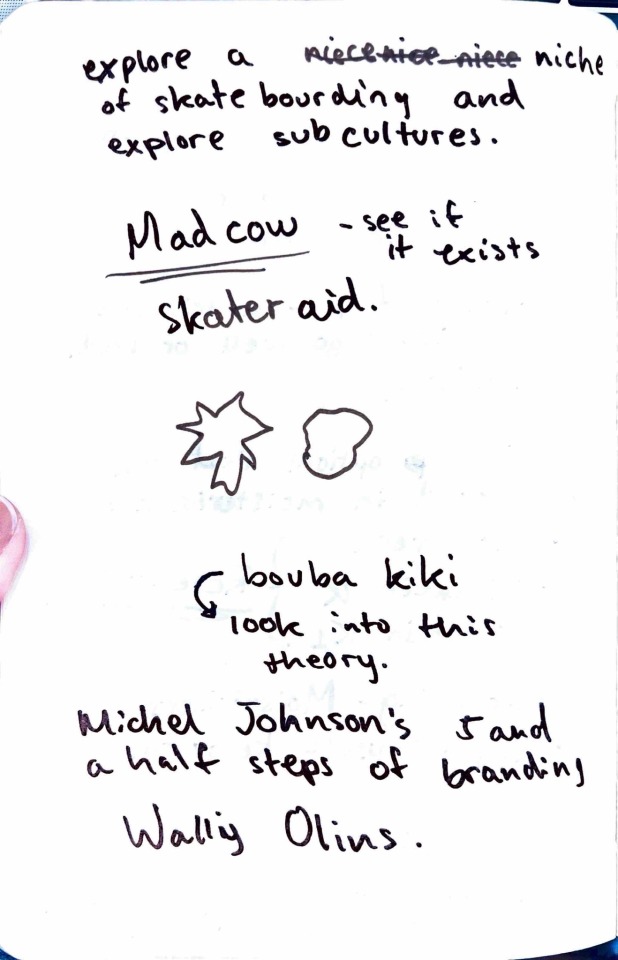 explore a niece nice niece niche
of skate bourding and
explore sub cultures.
Mad cow - see if
it exists
skater aid.
bouba kiki
look into this
theory.
Michel Johnson's 5 and
a half steps of branding
Wally Olins.